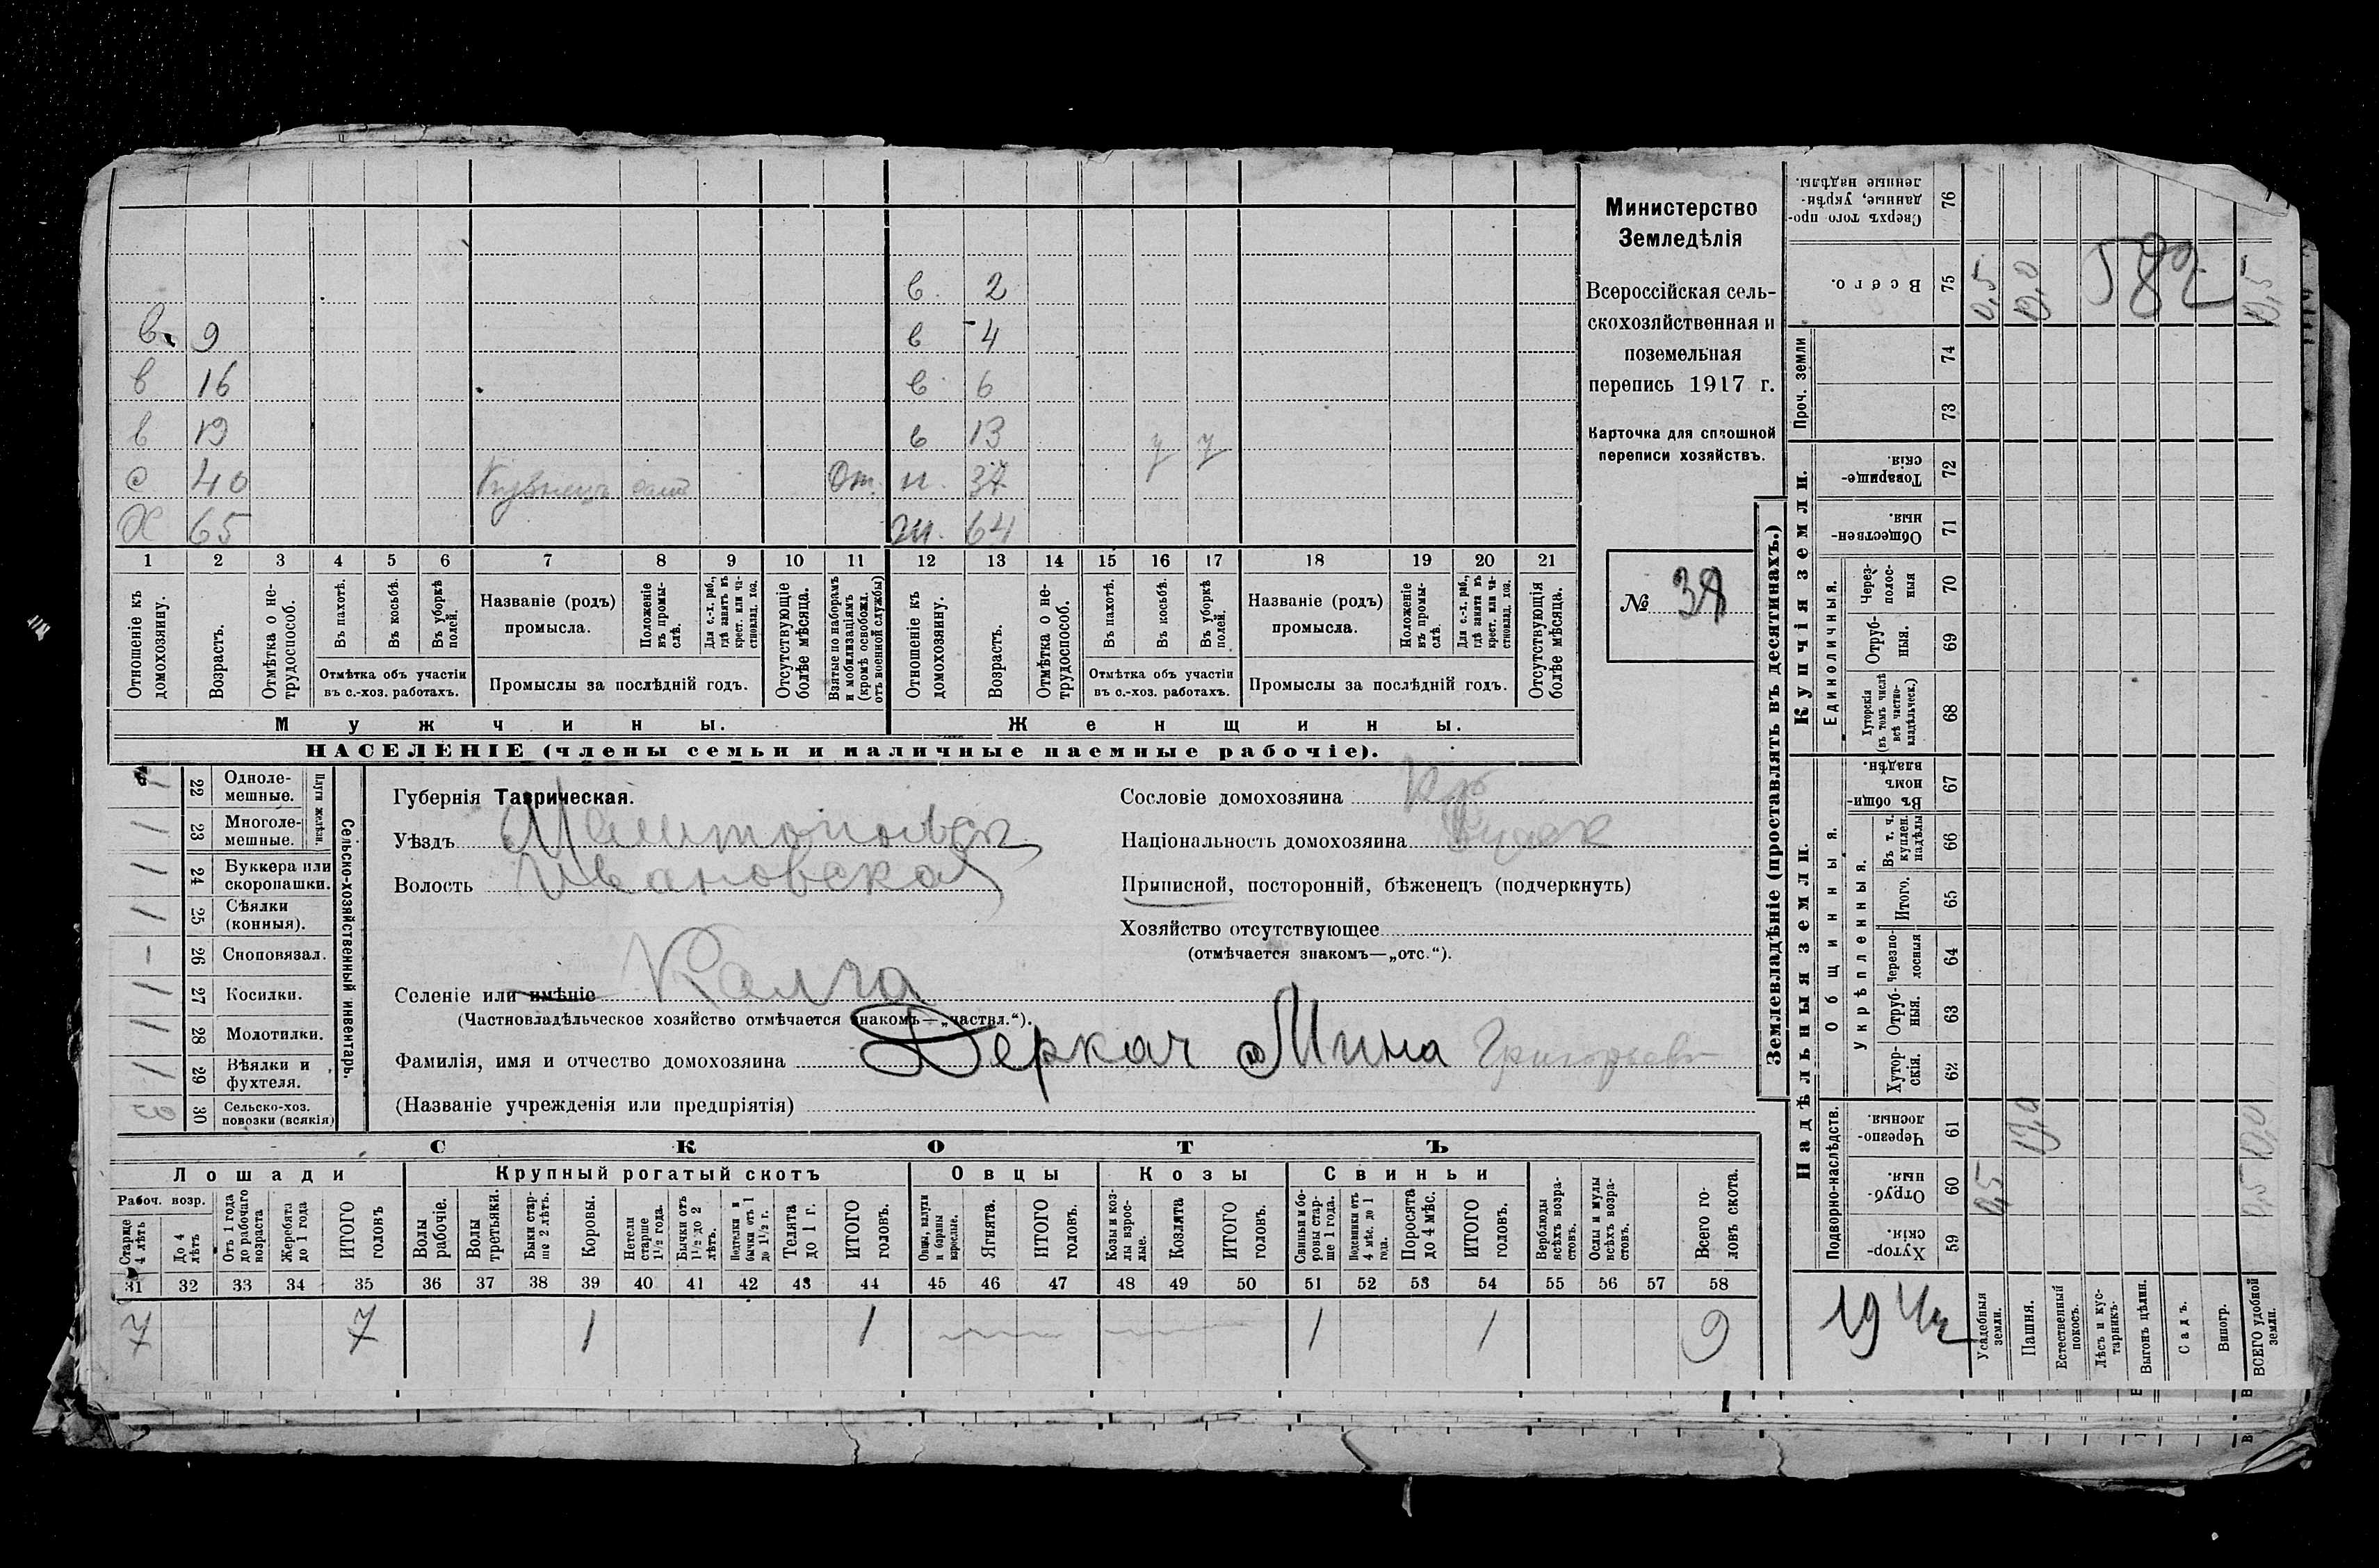 Министерство
Земледѣлія
Всероссійская сель-
скохозяйственная и
поземельная
перепись 1917 г.
Карточка для сплошной
переписи хозяйствъ.
№ 38
в. 2
в. 9 в 4
в 16 в. 6
в 19 в 13 у у
с 40 Кузнецъ От. н. 37
Х 65 64
1 2 3 4 5 6 7 8 9 10 11 12 13 14 15 16 17 18 19 20 21
Отношеніе къ домохозяину.
Возрастъ.
Отмѣтка о не-трудоспособ.
Въ пахотѣ.
Въ косьбѣ.
Въ уборкѣ полей.
Отмѣтка объ участіи въ с.-хоз. работахъ.
Названіе (родъ) промысла.
Положеніе въ промы-слѣ.
Для с.-х. раб., гдѣ занятъ въ крест. или ча-стновлад. хоз.
Промыслы за послѣдній годъ.
Отсутствующіе болѣе мѣсяца.
Взятые по наборамъ и мобилизаціямъ (кромѣ освобожд. отъ военной службы)
Отношеніе къ домохозяину.
Возрастъ.
Отмѣтка о не-трудоспособ.
Въ пахотѣ.
Въ косьбѣ.
Въ уборкѣ полей.
Отмѣтка объ участіи въ с.-хоз. работахъ.
Названіе (родъ) промысла.
Положеніе въ промы-слѣ.
Для с.-х. раб., гдѣ занята въ крест. или ча-стновлад. хоз.
Промыслы за послѣдній годъ.
Отсутствующія болѣе мѣсяца.
Мужчины. Женщины.
НАСЕЛЕНІЕ (члены семьи и наличные наемные рабочіе).
Губернія Таврическая.
Уѣздъ
Волость Ивановская
Селеніе или имѣніе Калга
(Частновладѣльческое хозяйство отмѣчается знакомъ—„частвл.“).
Фамилія, имя и отчество домохозяина Деркач Мина Григорьев
(Названіе учрежденія или предпріятія)
Сословіе домохозяина Кр
Національность домохозяина
Приписной, посторонній, бѣженецъ (подчеркнуть)
Хозяйство отсутствующее
(отмѣчается знакомъ—„отс.“).
Сельско-хозяйственный инвентарь.
Плуги желѣзн.
22 Одноле-мешные.
1 23 Многоле-мешные.
1 24 Буккера или скоропашки.
1 25 Сѣялки (конныя).
- 26 Сноповязал.
1 27 Косилки.
1 28 Молотилки.
1 29 Вѣялки и фухтеля.
3 30 Сельско-хоз. повозки (всякія)
СКОТЪ
Лошади Крупный рогатый скотъ Овцы Козы Свиньи
Рабоч. возр.
Старше 4 лѣтъ
До 4 лѣтъ
Отъ 1 года до рабочаго возраста
Жеребята до 1 года
ИТОГО головъ
Волы рабочіе.
Волы третьяки.
Быки стар-ше 2 лѣтъ.
Коровы.
Нетели старше 1½ года.
Бычки отъ 1½ до 2 лѣтъ.
Подтелки и бычки отъ 1 до 1½ г.
Телята до 1 г.
ИТОГО головъ.
Овцы, валухи и бараны взрослые.
Ягнята.
ИТОГО головъ.
Козы и коз-лы взрос-лые.
Козлята
ИТОГО головъ.
Свиньи и бо-ровы стар-ше 1 года.
Подсвинки отъ 4 мѣс. до 1 года.
Поросята до 4 мѣс.
ИТОГО головъ.
Верблюды всѣхъ возра-стовъ.
Ослы и мулы всѣхъ возра-стовъ.
Всего го-ловъ скота.
31 32 33 34 35 36 37 38 39 40 41 42 43 44 45 46 47 48 49 50 51 52 53 54 55 56 57 58
7 7 1 1 1 1 9
Землевладѣніе (проставлять въ десятинахъ.)
Надѣльныя земли. Купчія земли. Проч. земли
Подворно-наслѣдств. Общинныя. Укрѣпленныя. Единоличныя.
Хутор-скія. 59
Отруб-ныя. 60 0,5 0,5
Черезпо-лосныя. 61 10,0 10,0
Хутор-скія. 62
Отруб-ныя. 63
Черезпо-лосныя 64
Итого. 65
Въ т. ч. куплен. надѣлы 66
Въ общин-номъ владѣн. 67
Хуторскія (въ томъ числѣ всѣ частно-владѣльческ.) 68
Отруб-ныя. 69
Через-полос-ныя 70
Обществен-ныя. 71
Товарище-скія. 72
73
74
Всего. 75 0,5 10,0 582 10,5
Сверхъ того про-данные, укрѣп-ленные надѣлы. 76
19
Усадебныя земли.
Пашня.
Естественный покосъ.
Лѣсъ и кус-тарникъ.
Выгонъ цѣлин.
Садъ.
Виногр.
ВСЕГО удобной земли.